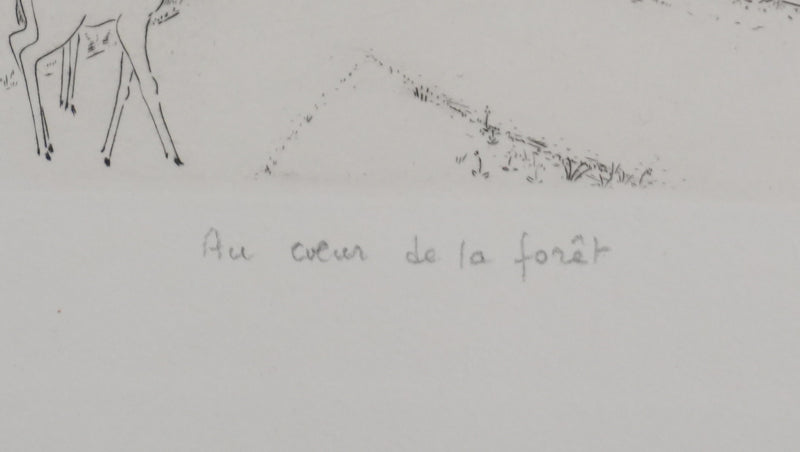 Au cœur de la forêt